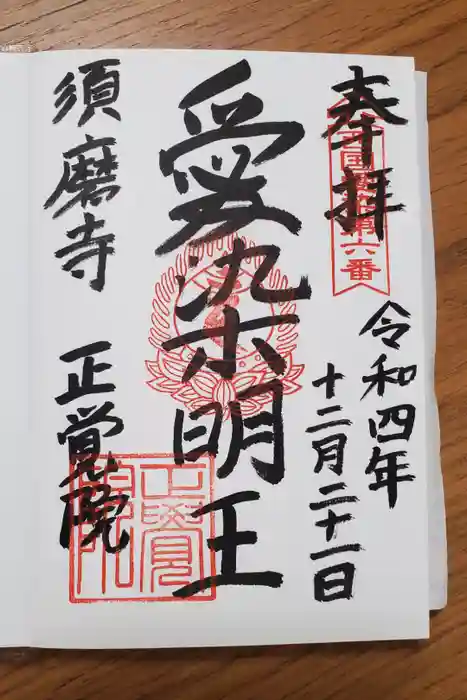 奉拝
第十六番
令和四年
十二月二十一日
愛染明王
須磨寺
正覚院
正覺院